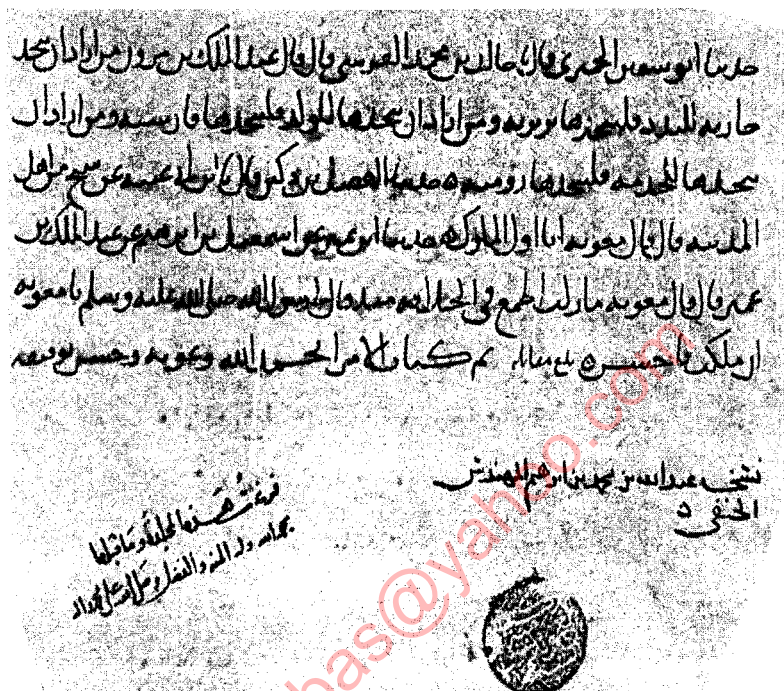 حدثنا ابو سفين الحميري قال نا خالد بن محمد القرشي قال قال عبد الملك بن مرون من اراد ان يتخذ
جاريه للتلذذ فليتخذها بربريه ومن اراد ان يتخذها للولد فليتخذها فارسيه ومن اراد ان
يتخذها للخدمه فليتخذها روميه ه حدثنا الفضل بن دكين قال نا ابن ابي غنيه عن شيخ من اهل
المدينه قال قال معويه انا اول الملوك ه حدثنا ابن نمير عن اسمعيل بن ابرهيم عن عبد الملك بن
عمير قال قال معويه ما زلت اطمع في الخلافه منذ قال لي رسول الله صلى الله عليه وسلم يا معويه
ان ملكت فاحسن ه بلغ مقابله تم كتاب الامرا بحمد الله وعونه وحسن توفيقه
نسخه عبد الله بن محمد بن ابرهيم المهندس
الحنفي
فرغت هذه المجلده وما قبلها
بحمد الله وله المنه والفضل وصلى الله على محمد واله
bas@yahoo.com